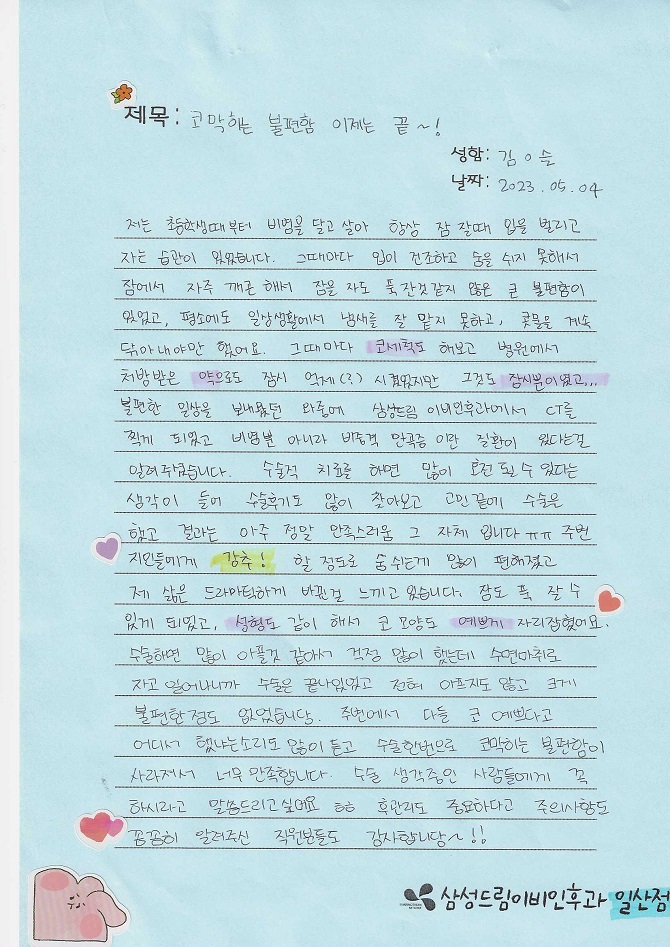 제목: 코막히는 불편함 이제는 끝~!
성함: 김이슬
날짜: 2023.05.04
저는 초등학생때부터 비염을 달고 살아 항상 잠 잘때 입을 벌리고
자는 습관이 있었습니다. 그때마다 입이 건조하고 숨을 쉬지 못해서
잠에서 자주 깨곤 해서 잠을 자도 푹 잔것같지 않은 큰 불편함이
있었고, 평소에도 일상생활에서 냄새를 잘 맡지 못하고, 콧물을 계속
닦아내야만 했어요. 그때마다 코세척도 해보고 병원에서
처방받은 약으로도 잠시 억제(?) 시켰었지만 그것도 잠시뿐이였고...
불편한 일상을 보내왔던 와중에 삼성드림 이비인후과에서 CT를
찍게 되었고 비염뿐 아니라 비중격 만곡증 이란 질환이 있다는걸
알려주셨습니다. 수술적 치료를 하면 많이 호전 될 수 있다는
생각이 들어 수술후기도 많이 찾아보고 고민끝에 수술은
했고 결과는 아주 정말 만족스러움 그 자체 입니다ㅠㅠ 주변
지인들에게 강추! 할 정도로 숨쉬는게 많이 편해졌고
제 삶은 드라마틱하게 바뀐걸 느끼고 있습니다. 잠도 푹 잘 수
있게 되었고, 성형도 같이 해서 코 모양도 예쁘게 자리잡혔어요.
수술하면 많이 아플것 같아서 걱정 많이 했는데 수면마취로
자고 일어나니까 수술은 끝나있었고 전혀 아프지도 않고 크게
불편한점도 없었습니당. 주변에서 다들 코 예쁘다고
어디서 했냐는소리도 많이 듣고 수술한번으로 코막히는 불편함이
사라져서 너무 만족합니다. 수술 생각중인 사람들에게 꼭
하시라고 말씀드리고싶어요 ㅎㅎ 후관리도 중요하다고 주의사항도
꼼꼼히 알려주신 직원분들도 감사합니당~!!
삼성드림이비인후과 일산점